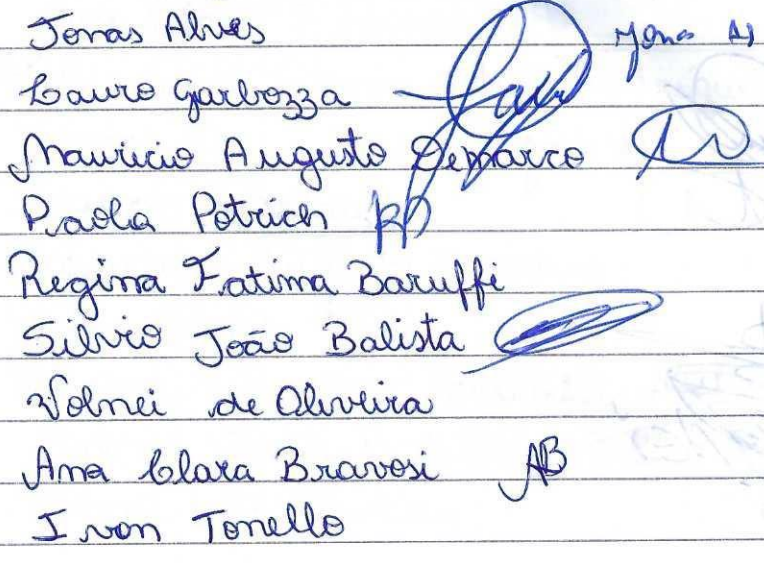 Jonas Alves Jonas Al
Lauro Garbozza
Mauricio Augusto Demarco
Paola Potrich PP
Regina Fatima Baruffi
Silvio João Balista
Volnei de Oliveira
Ana Clara Bravosi AB
Ivon Tonello